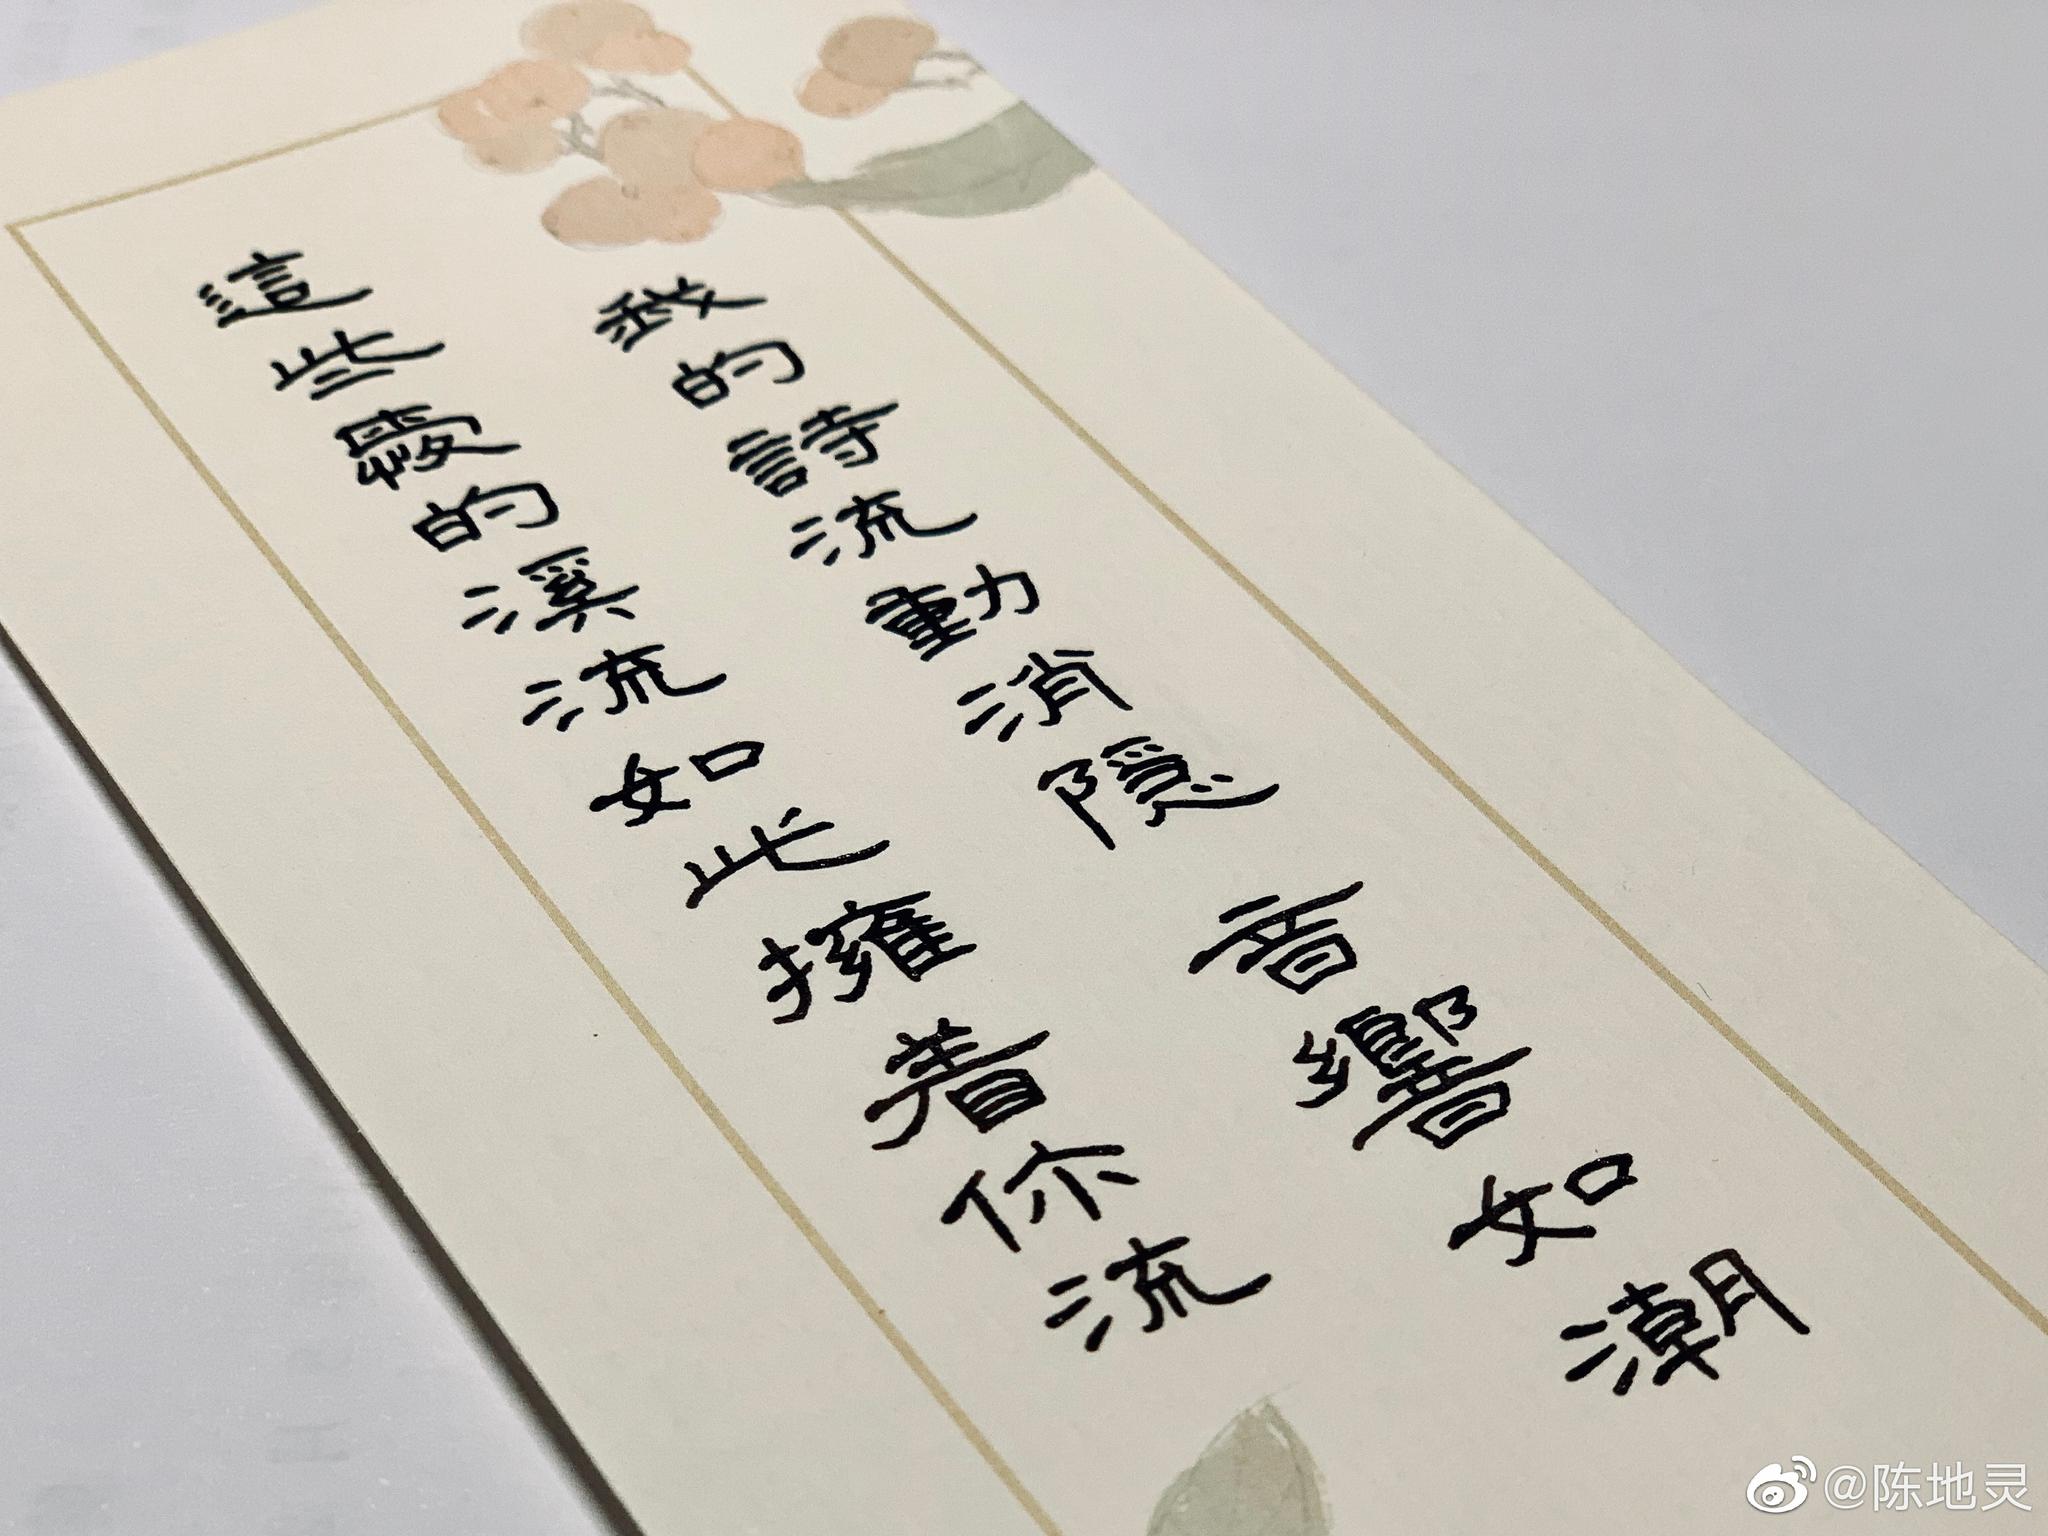 我的詩流動消隱 音響如潮
這些愛的溪流如此擁着你流
@陈地灵